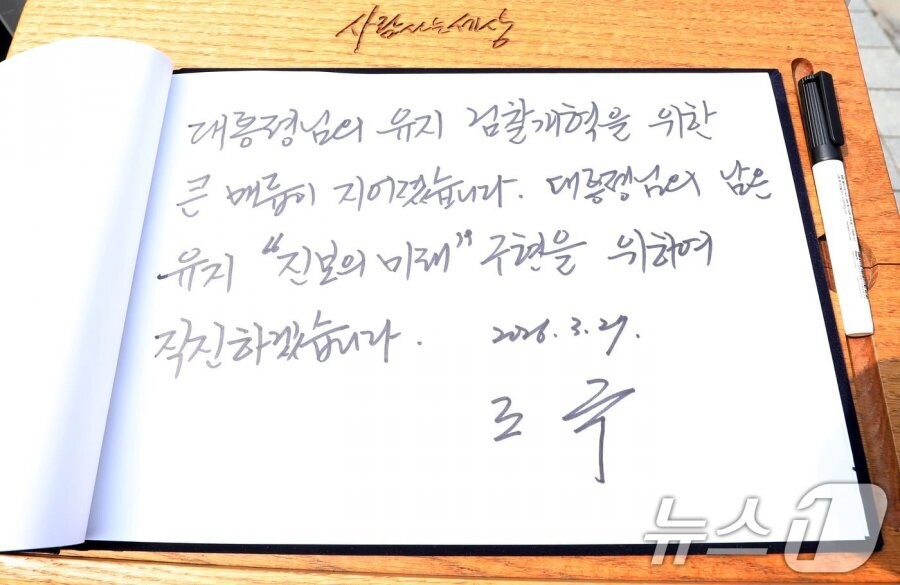 사람사는세상
대통령님의 유지 검찰개혁을 위한
큰 매듭이 지어졌습니다. 대통령님의 남은
유지 “진보의 미래” 구현을 위하여
직진하겠습니다. 2026. 3. 27.
조 국
뉴스1